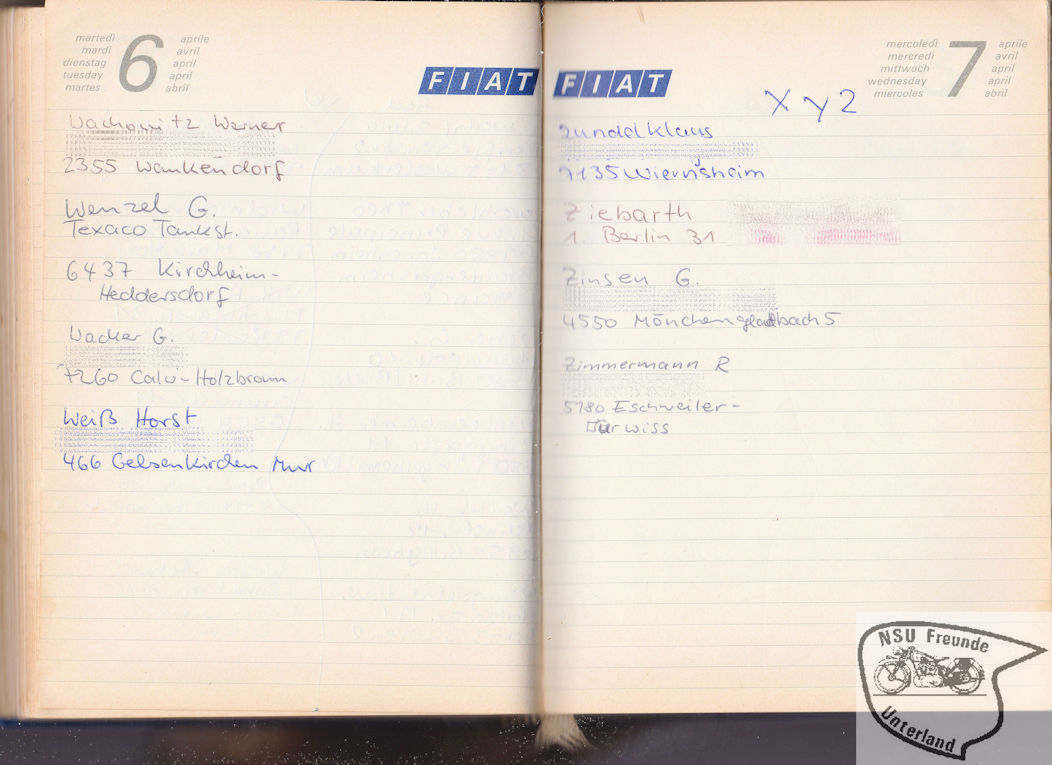 martedì
mardi
dienstag
tuesday
martes
6
aprile
avril
april
april
abril
FIAT
Wachowitz Werner
2355 Wankendorf
Wenzel G.
Texaco Tankst.
6437 Kirchheim-
Heddersdorf
Wacker G.
7260 Calw-Holzbronn
Weiß Horst
466 Gelsenkirchen
FIAT
mercoledì
mercredi
mittwoch
wednesday
miercoles
7
aprile
avril
april
april
abril
X Y Z
Zundel Klaus
7135 Wiernsheim
Ziebarth
1. Berlin 31
Zinsen G.
4550 Mönchengladbach 5
Zimmermann R
5180 Eschweiler-
Dürwiss
NSU Freunde
Unterland